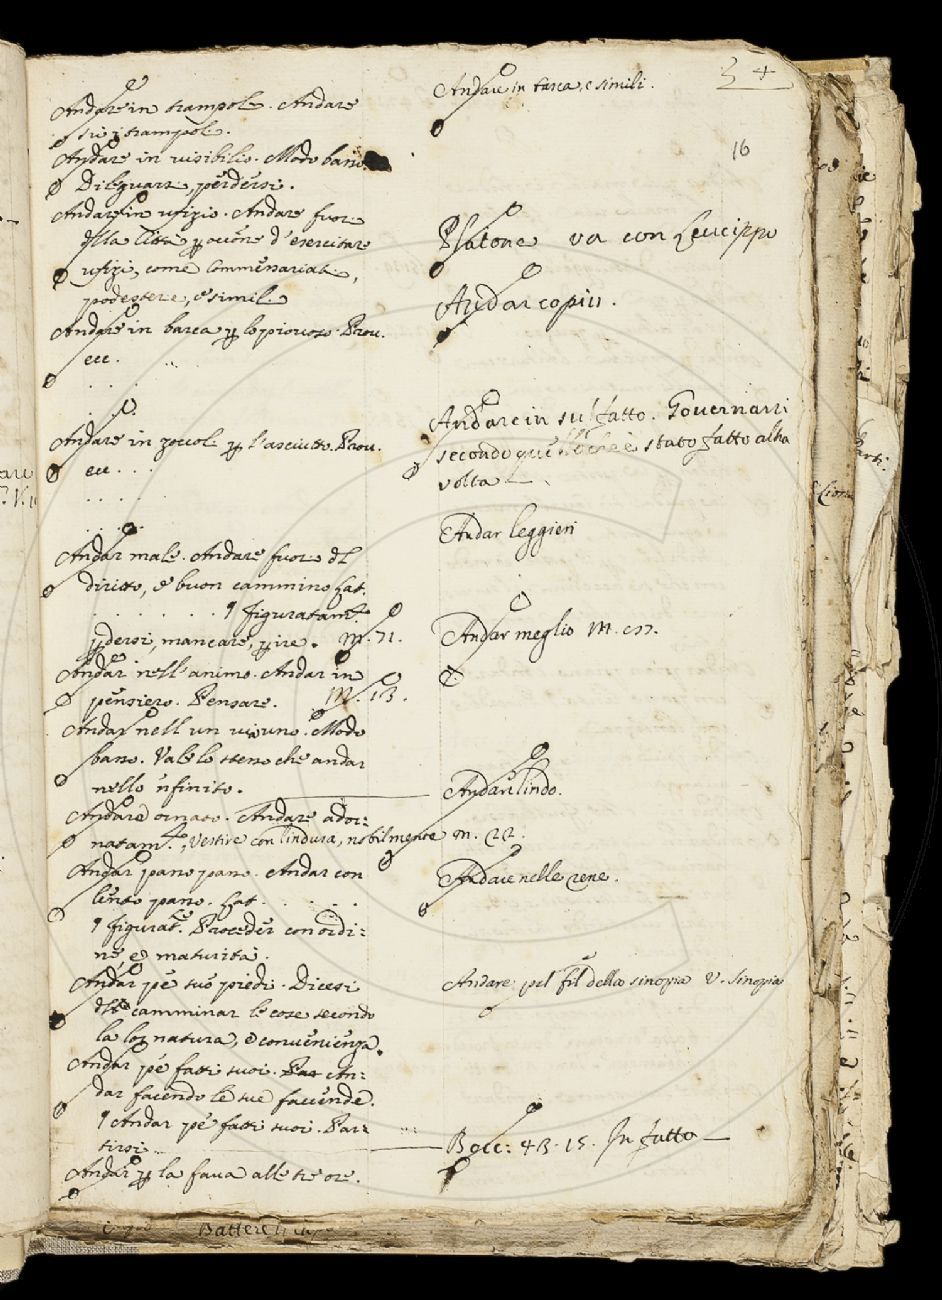 Andare in trampoli. Andare
su i trampoli.
Andare in visibilio. Modo basso
Dileguare, perdersi.
Andare in ufizio. Andare fuor
della Città ꝑ cagione d'esercitare
ufizi, come Commenariati,
podesterie, e simili.
Andare in barca ꝑ lo piovoso. Prov.
ecc.
. . .
Andare in zoccoli ꝑ l'asciutto. Prov.
ecc. . .
. . . .
Andar male. Andare fuor dl
diritto, e buon cammino Lat.
. . . . . . ¶ figuratamte
ꝑdersi, mancare, ꝑire. M. 71.
Andar nell'animo. Andar in
pensiero. Pensare. M. 13.
Andar nell un viuno. Modo
basso. Vale lo stesso che andar
nello 'nfinito.
Andare ornato. Andare ador-
natamte, vestire con lindura, nobilmente
Andar passo passo. Andar con
lento passo. Lat. . . . .
¶ figuratte Proceder con ordi=
ne, e maturità.
Andar pe' suo' piedi. Dicesi
del camminar le cose secondo
la lor natura, e convenienza.
Andar pe' fatti suoi. Par An=
dar facendo le sue faccende.
¶ Andar pe' fatti suoi. Par=
tirsi
Andar ꝑ la fava alle tre ore.
Andare in tasca, e simili.
34
16
Platone va con Leucippo
Andar copiu.
Andare in sul fatto. Governarsi
secondo quello che è stato fatto altra
volta
Andar leggieri
Andar meglio M. cn.
Andare lindo.
m. 22.
Andare nelle rene.
Andare pel fil della sinopia V. Sinopia
Bocc: 43. 15. In fatto
Battere